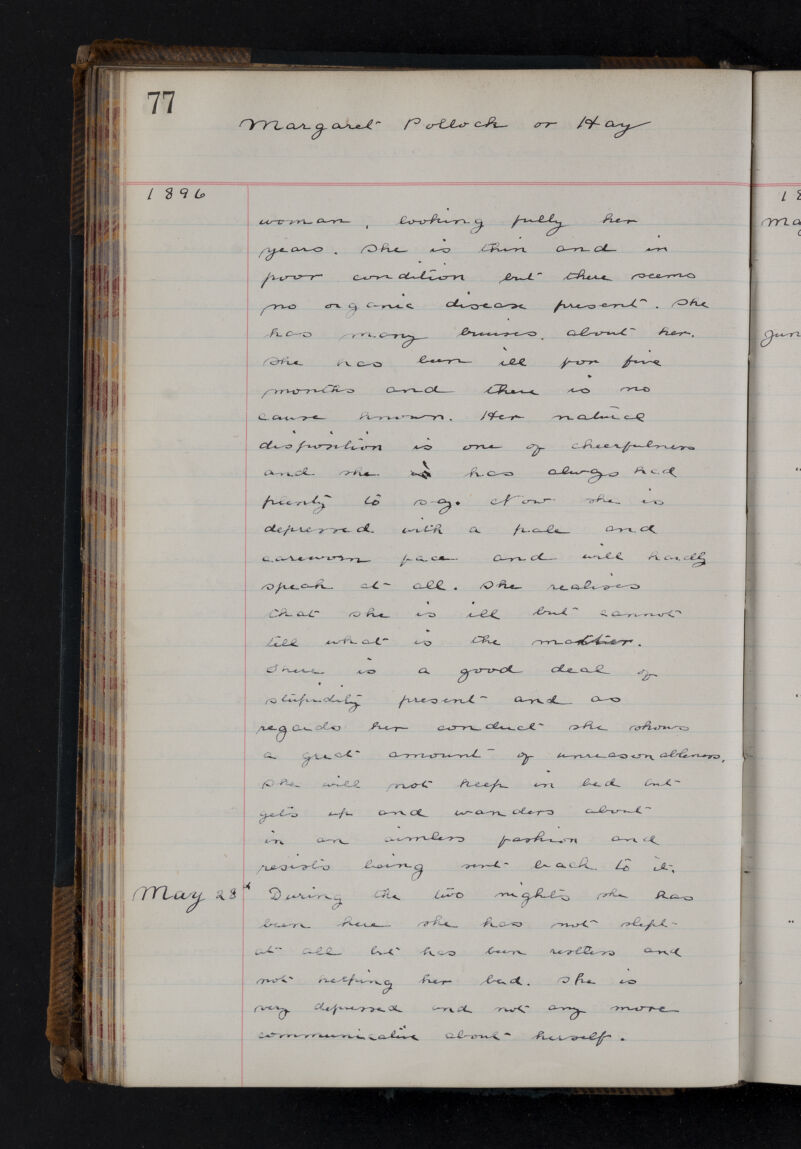 77
Margaret Pollock or Hay
1896
woman, looking fully her
years. She is thin and in
poor condition but there seems
no organic disease present. She
has many bruises about her.
She has been ill for five
months and there is no
cause known. Her natural
disposition is one of cheerfulness
and she is has always had
plenty to say. Now she is
depressed with a pale and
careworn face and will hardly
speak at all. She realises
that she is ill but cannot
tell what is the matter.
There is a good deal of
stupidity present and as
regards her conduct she shows
a great amount of unreasonableness.
She will not keep in bed but
gets up and wanders about
in an aimless fashion and
resists being sent back to it.
May 28th During the two nights she has
been here she has not slept
at all but has been restless and
not keeping her bed. She is
very depressed and not any more
communicative about herself.